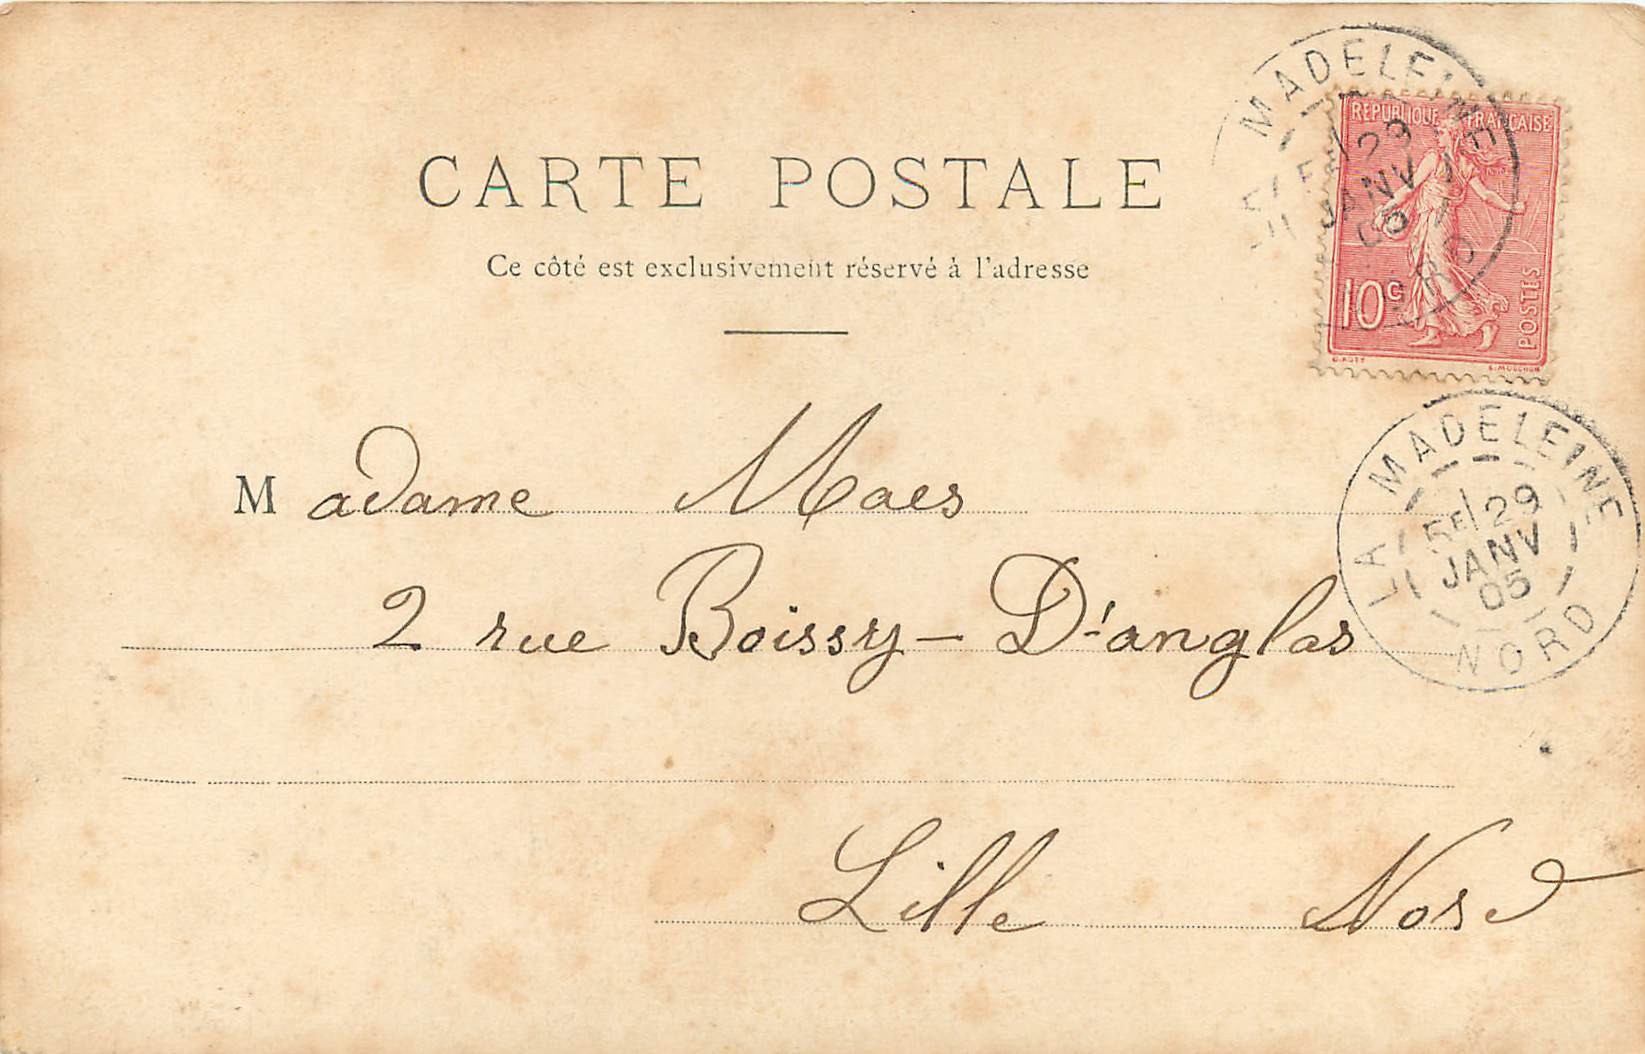 CARTE POSTALE
Ce côté est exclusivement réservé à l'adresse
REPUBLIQUE FRANÇAISE
10c
POSTES
O.ROTY
E.MOUCHON
MADELEINE
29
JANV
05
Madame Maes
2 rue Boissy-D'anglas
Lille Nord
LA MADELEINE
5E 29
JANV
05
NORD